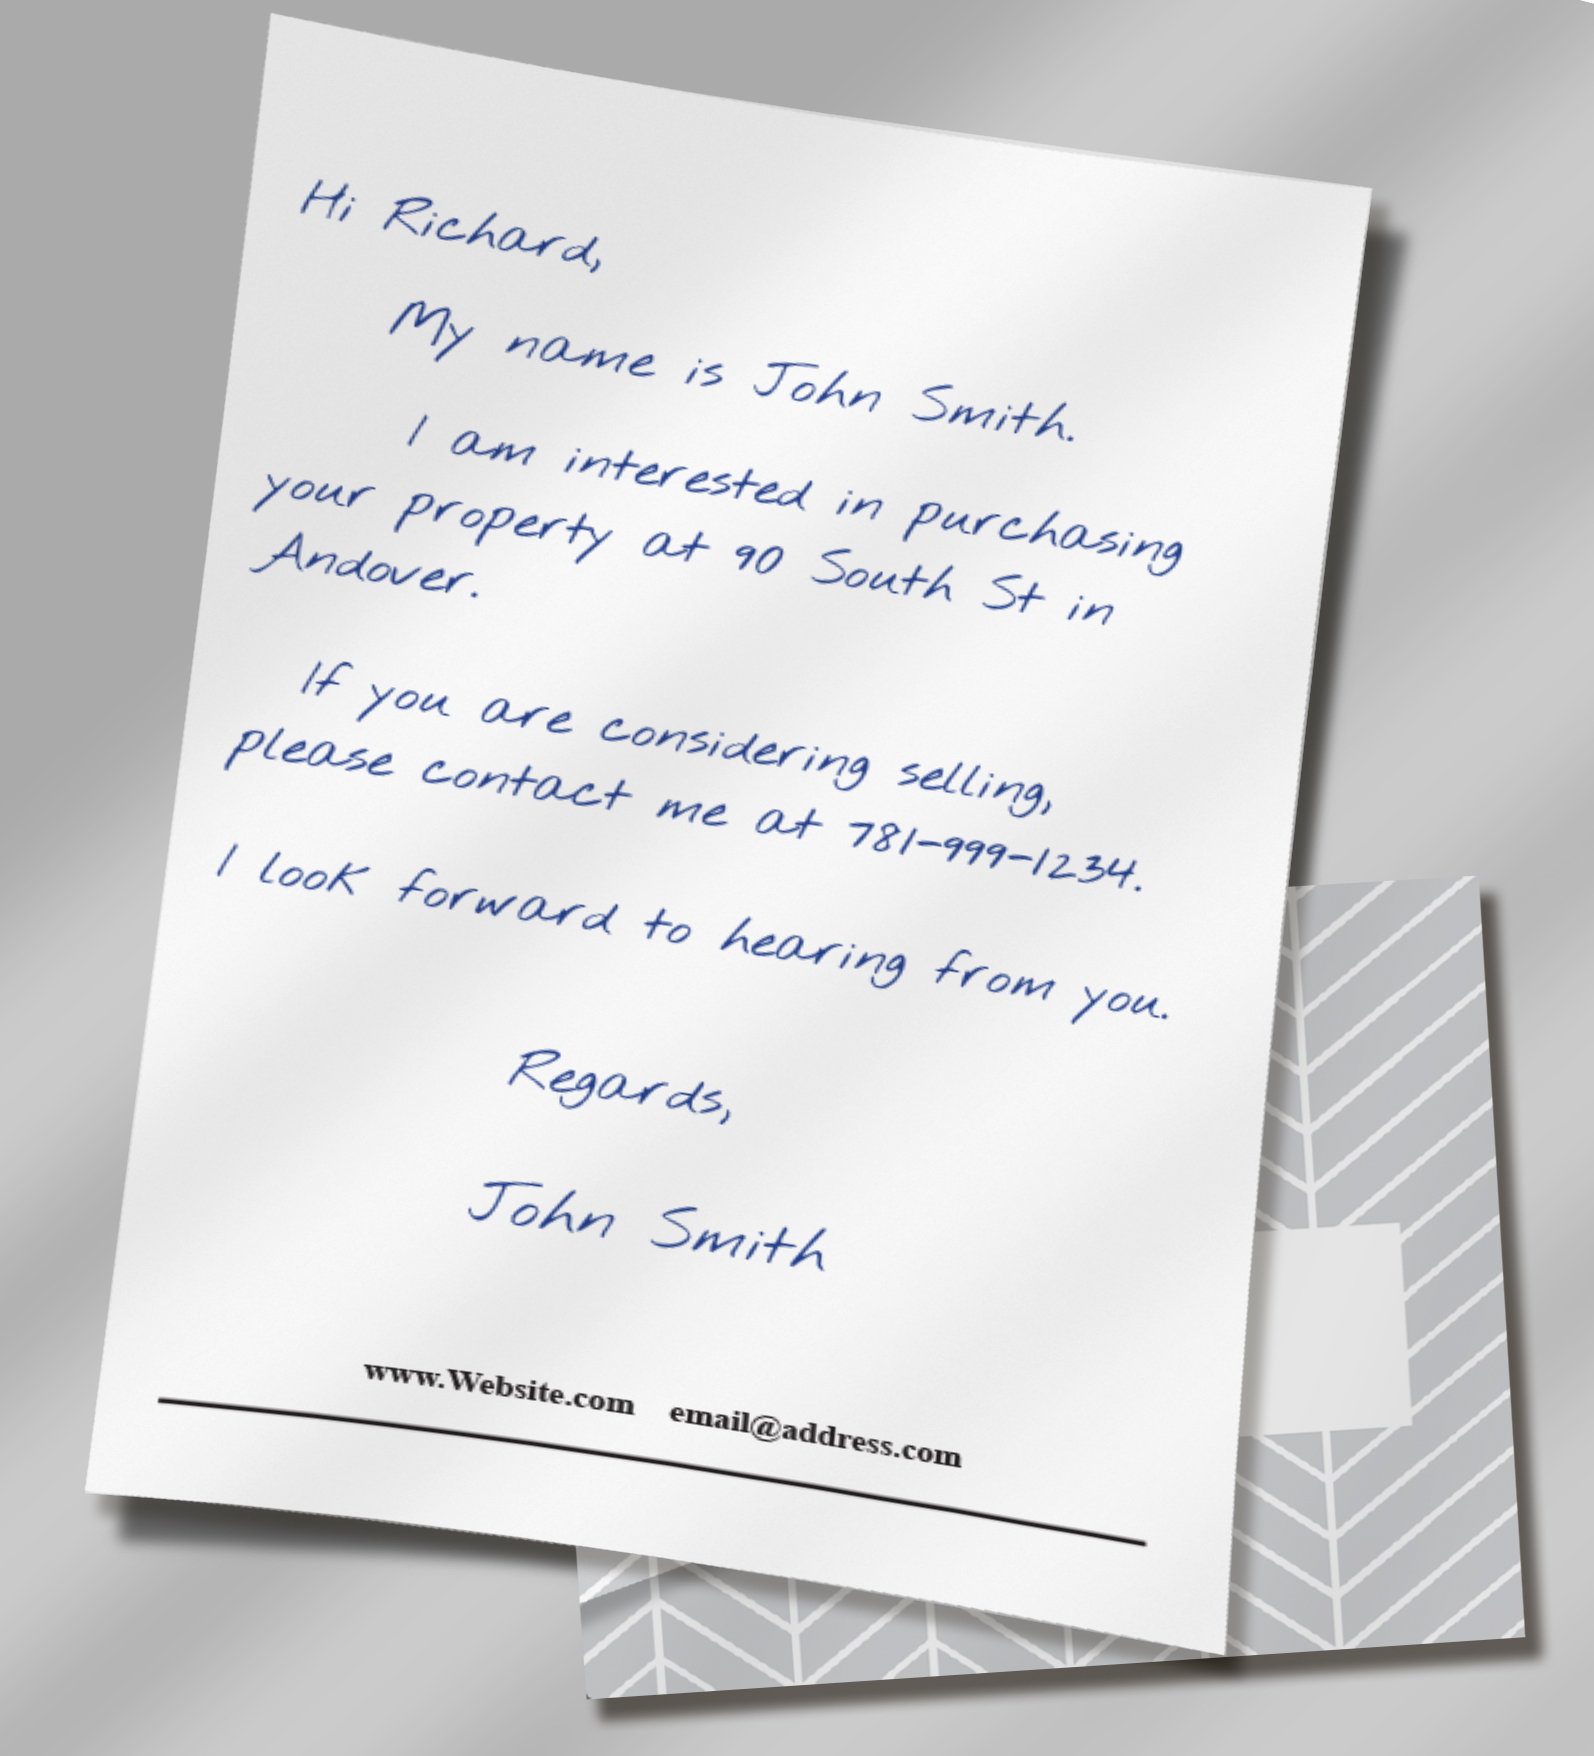 Hi Richard,
My name is John Smith.
I am interested in purchasing
your property at 90 South St in
Andover.
If you are considering selling,
please contact me at 781-999-1234.
I look forward to hearing from you.
Regards,
John Smith
www.Website.com email@address.com